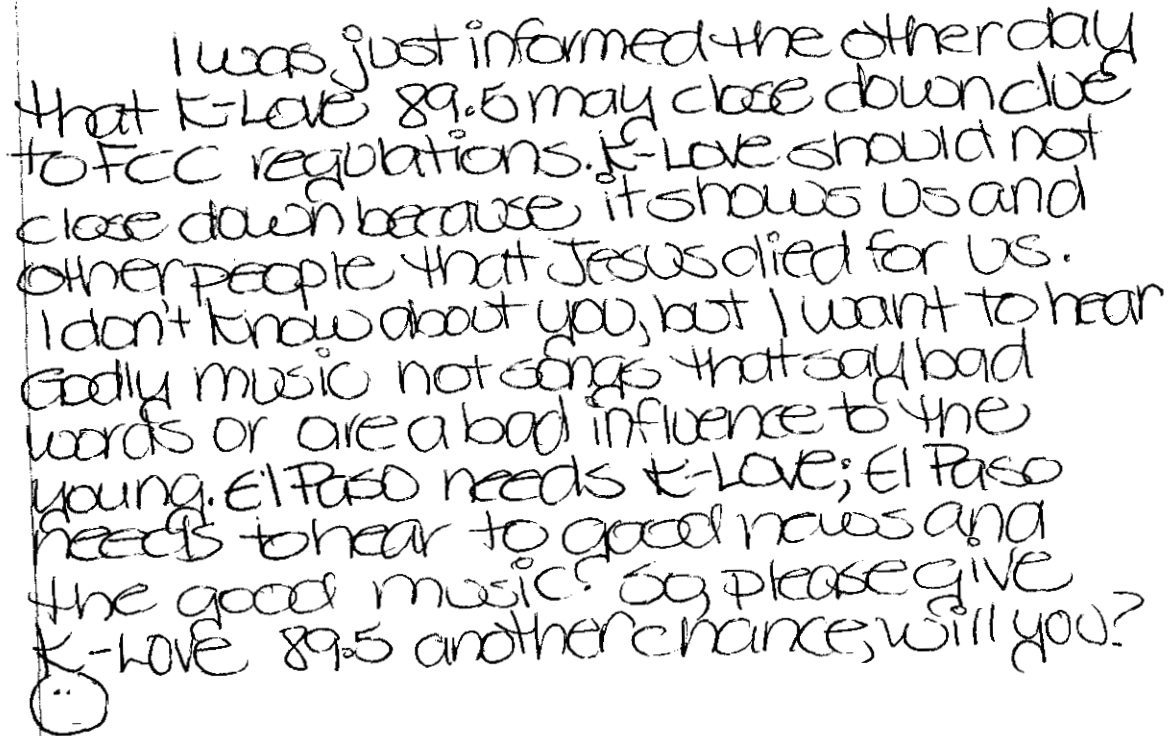 I was just informed the other day
that K-Love 89.5 may close down due
to FCC regulations. K-Love should not
close down because it shows us and
other people that Jesus died for us.
I don't know about you, but I want to hear
Godly music not songs that say bad
words or are a bad influence to the
young. El Paso needs K-Love; El Paso
needs to hear to good news and
the good music! So, please give
K-Love 89.5 another chance, will you?